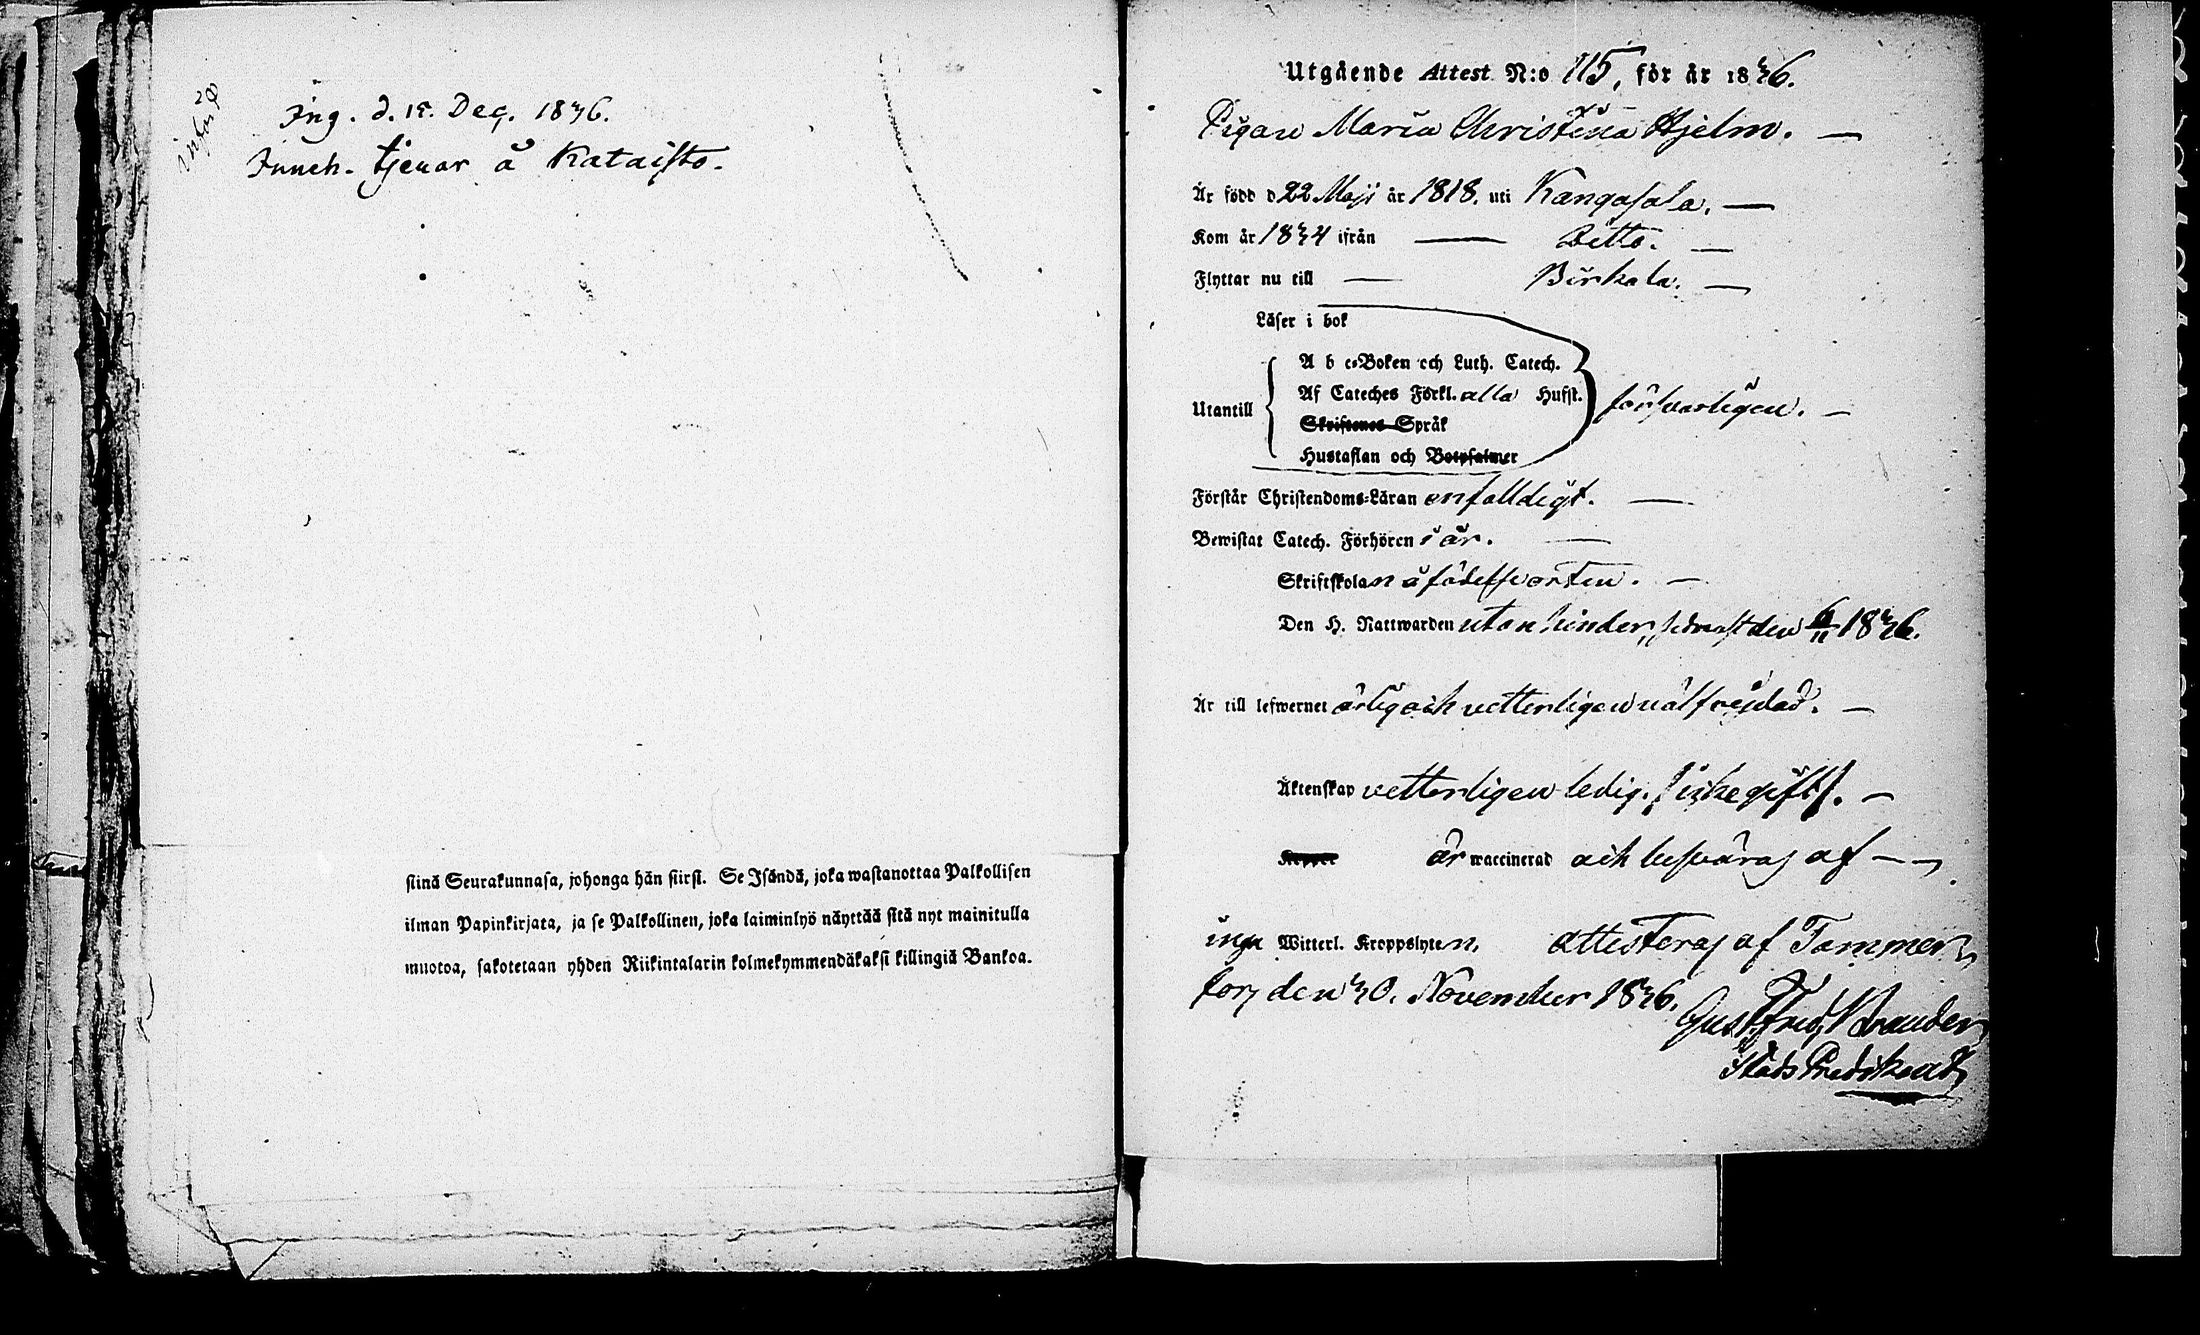 Ing. d. 15. Dec. 1836.
Inneh. tjenar å Kataisto.
införd
sinä Seurakunnasa, johonga hän siirsi. Se Isändä, joka wastanottaa Palkollisen
ilman Papinkirjata, ja se Palkollinen, joka laiminlyö näyttää sitä nyt mainitulla
muotoa, sakotetaan yhden Riikintalarin kolmekymmendäkaksi killingiä Bankoa.
Utgående Attest N:o 115, för år 1836.
Pigan Maria Christina Hjelm. —
Är född d 22 Maji år 1818. uti Kangasala. —
Kom år 1834 ifrån — Ditto. —
Flyttar nu till — Birkala. —
Läser i bok
A b c-Boken och Luth. Catech.
Af Cateches Förkl. alla Hufst.
Utantill försvarligen. —
Skriftenes Språk
Hustaflan och Botpsalmer
Förstår Christendoms-Läran enfalldigt. —
Bewistat Catech. Förhören i år. —
Skriftskolan å födelseorten. —
Den H. Nattwarden utan hinder, sednast den 6/11 1836.
Är till lefwernet ärlig och vetterligen välfrejdad. —
Äktenskap vetterligen ledig. (icke gift). —
är waccinerad och besväras af —
inga Witterl. Kroppslyten. attesteras af Tammer-
fors den 30. November 1836.
Gust. Fredr. Brander
Stads Predikant